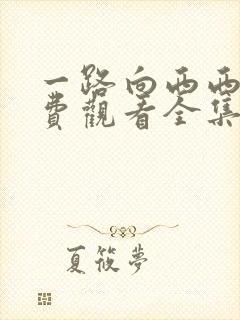 一路向西西
費觀看全集
夏筱夢